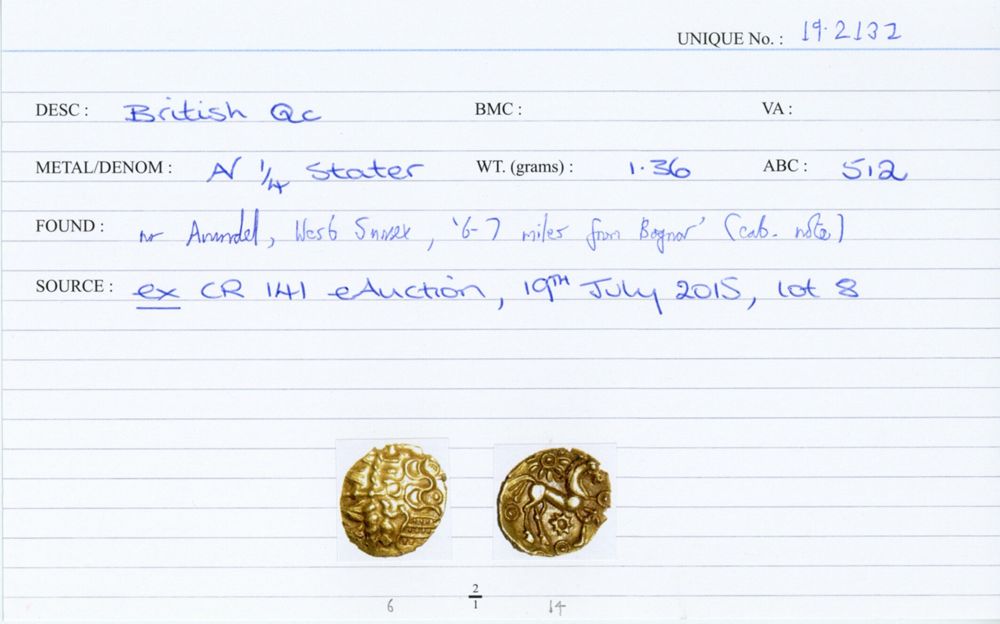 UNIQUE No. : 19.2132
DESC : British Qc BMC : VA :
METAL/DENOM : AV 1/4 Stater WT. (grams) : 1.36 ABC : 512
FOUND : nr Arundel, West Sussex, '6-7 miles from Bognor' (cab. note)
SOURCE : ex CR 141 eAuction, 19TH July 2015, lot 8
6 2/1 14